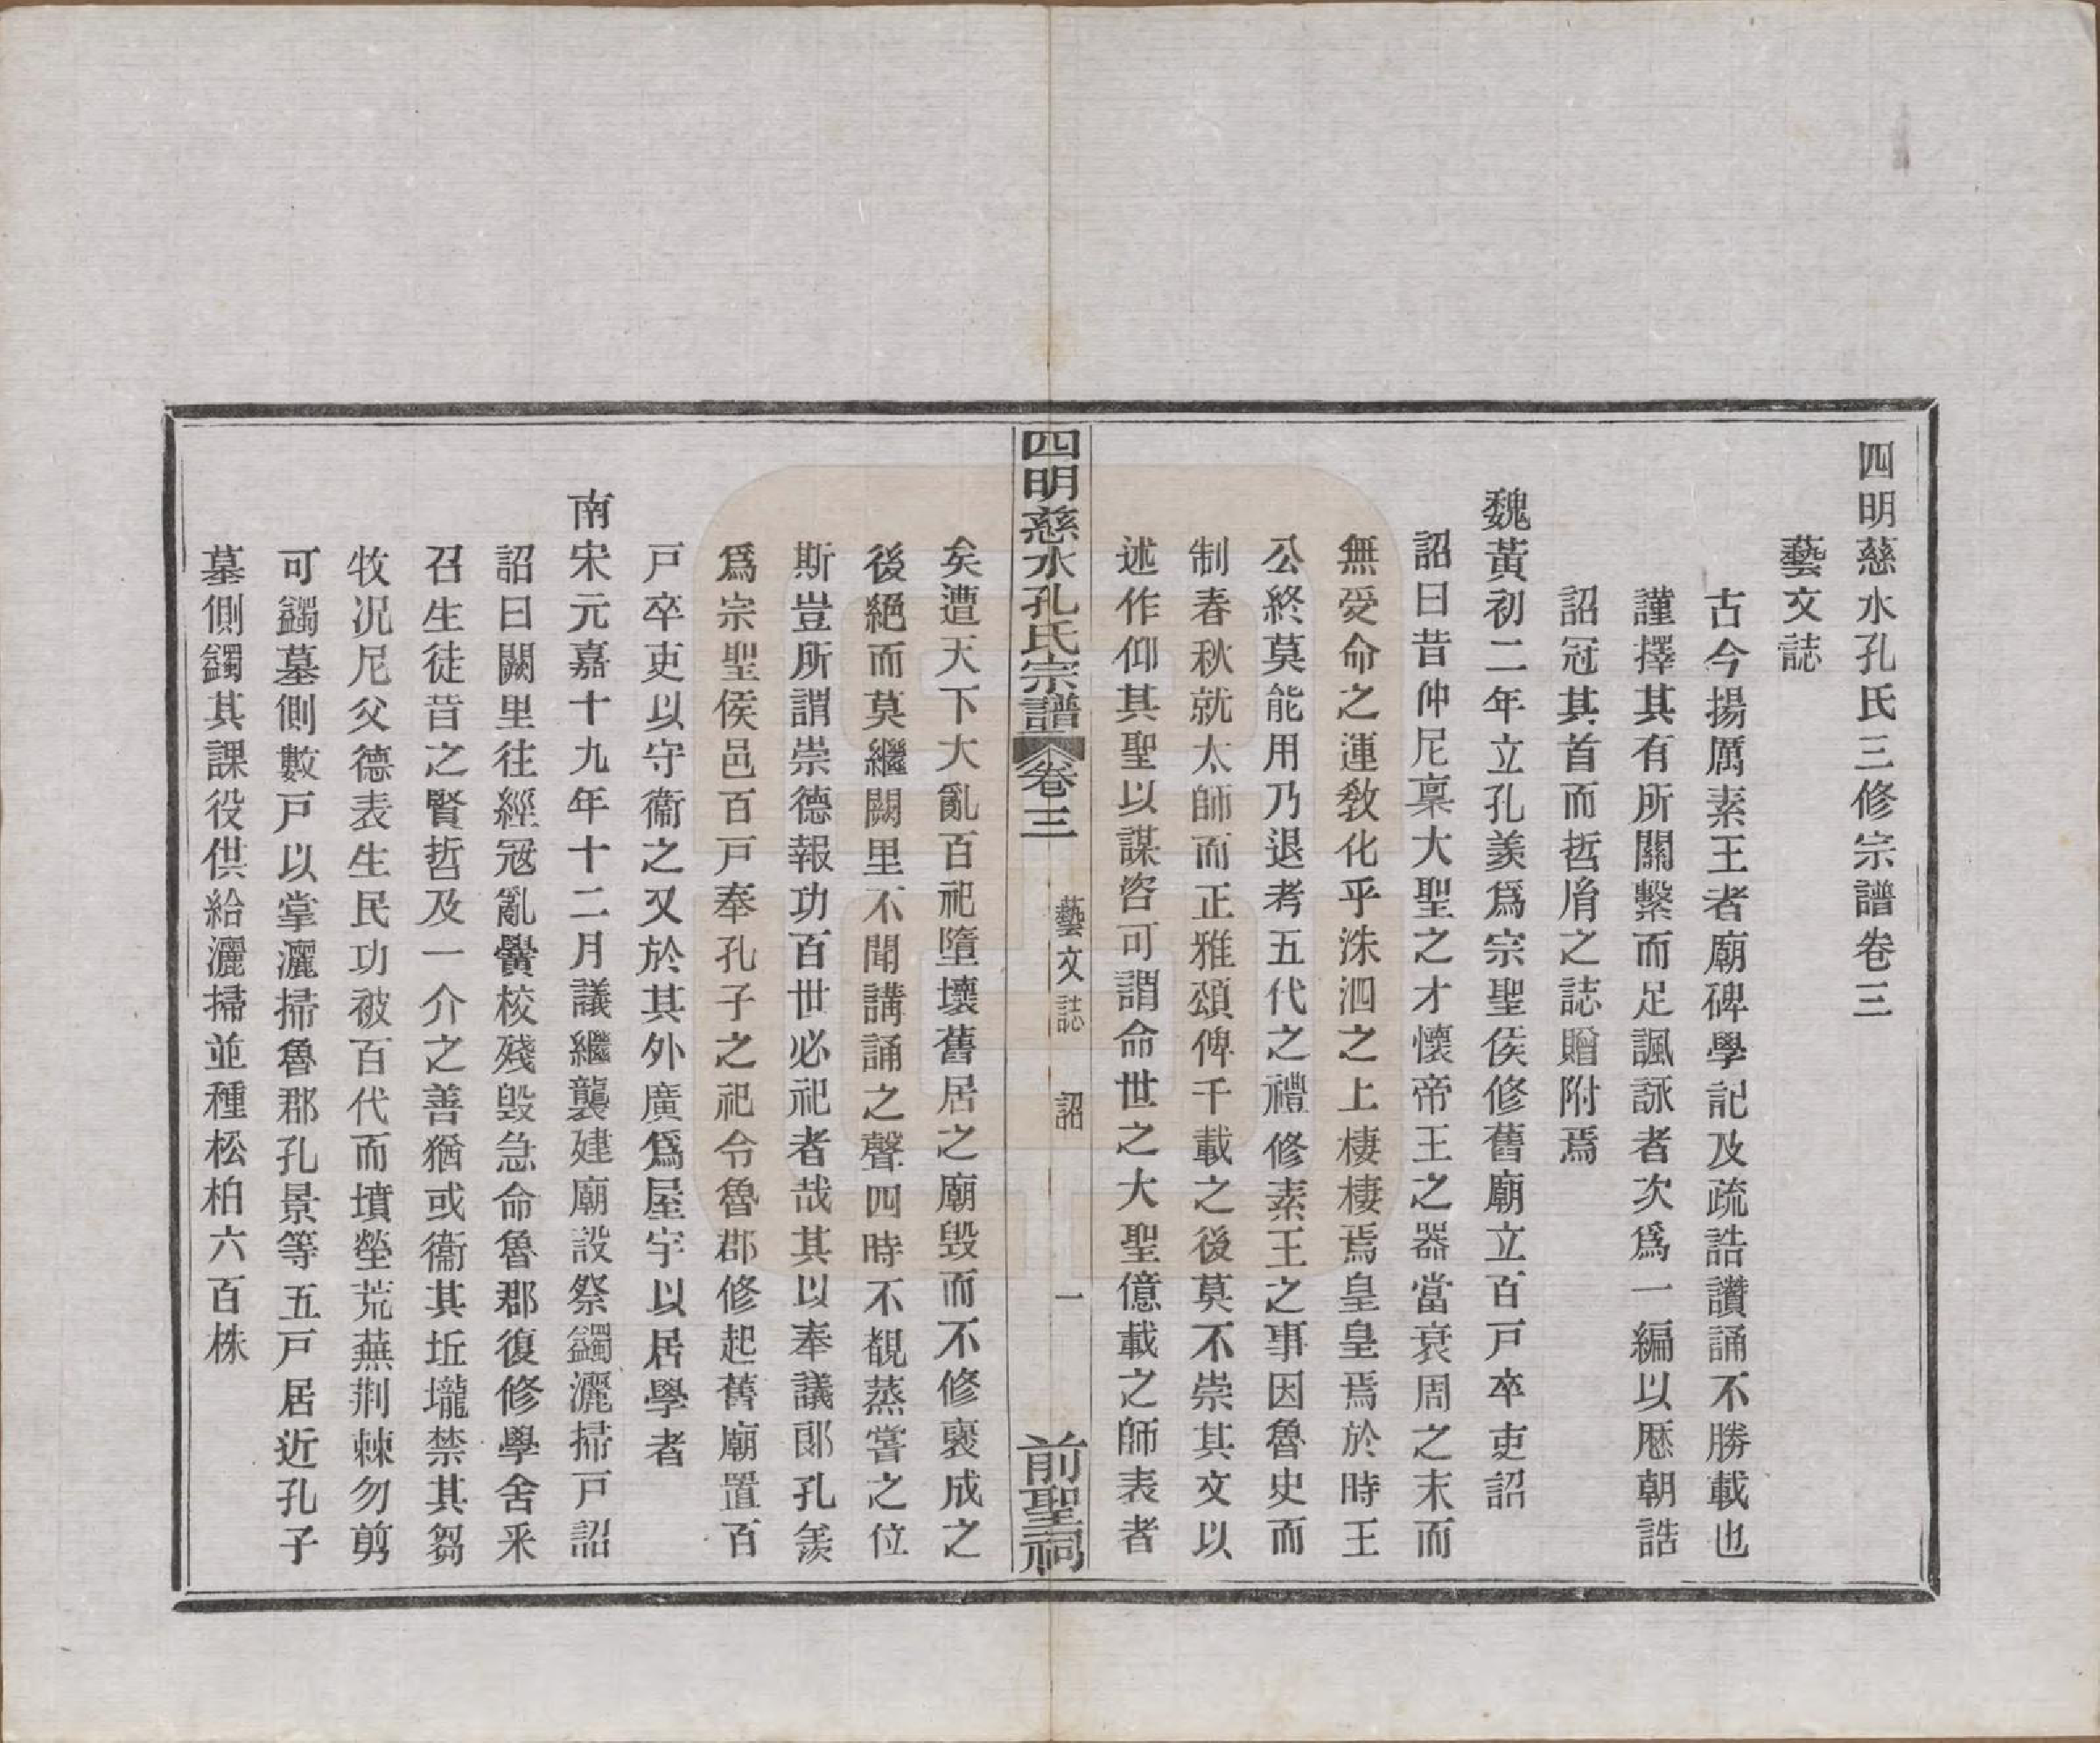 四明慈水孔氏三修宗譜卷三
藝文誌
古今揚厲素王者廟碑學記及疏誥讚誦不勝載也
謹擇其有所關繫而足諷詠者次爲一編以歷朝誥
詔冠其首而哲胤之誌贈附焉
魏黃初二年立孔羨爲宗聖侯修舊廟立百戸卒吏詔
詔曰昔仲尼稟大聖之才懷帝王之器當衰周之末而
無受命之運教化乎洙泗之上棲棲焉皇皇焉於時王
公終莫能用乃退考五代之禮修素王之事因魯史而
制春秋就太師而正雅頌俾千載之後莫不崇其文以
述作仰其聖以謀咨可謂命世之大聖億載之師表者
四明慈水孔氏宗譜 卷三 藝文誌 詔 一 前聖祠
矣遭天下大亂百祀墮壞舊居之廟毀而不修褒成之
後絕而莫繼闕里不聞講誦之聲四時不覩蒸嘗之位
斯豈所謂崇德報功百世必祀者哉其以奉議郎孔羨
爲宗聖侯邑百戸奉孔子之祀令魯郡修起舊廟置百
戸卒吏以守衞之又於其外廣爲屋宇以居學者
南宋元嘉十九年十二月議繼襲建廟設祭蠲灑掃戸詔
詔曰闕里往經冦亂黌校殘毀急命魯郡復修學舍采
召生徒昔之賢哲及一介之善猶或衞其坵壠禁其芻
牧况尼父德表生民功被百代而墳塋荒蕪荆棘勿剪
可蠲墓側數戸以掌灑掃魯郡孔景等五戸居近孔子
墓側蠲其課役供給灑掃並種松柏六百株